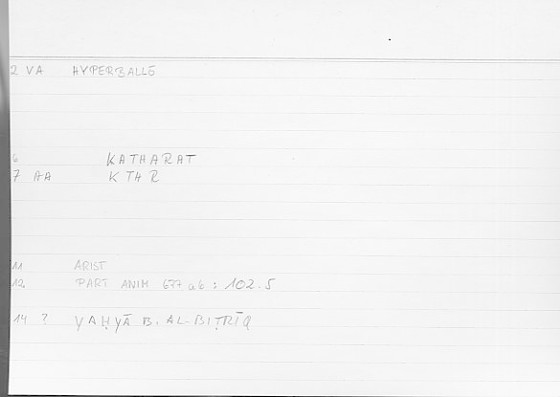 2 VA HYPERBALLĒ
6 KATHARAT
7 AA KTHR
11 ARIST
12. PART ANIM 677 a6 : 102.5
14 ? YAḤYĀ B. AL-BIṬRĪQ